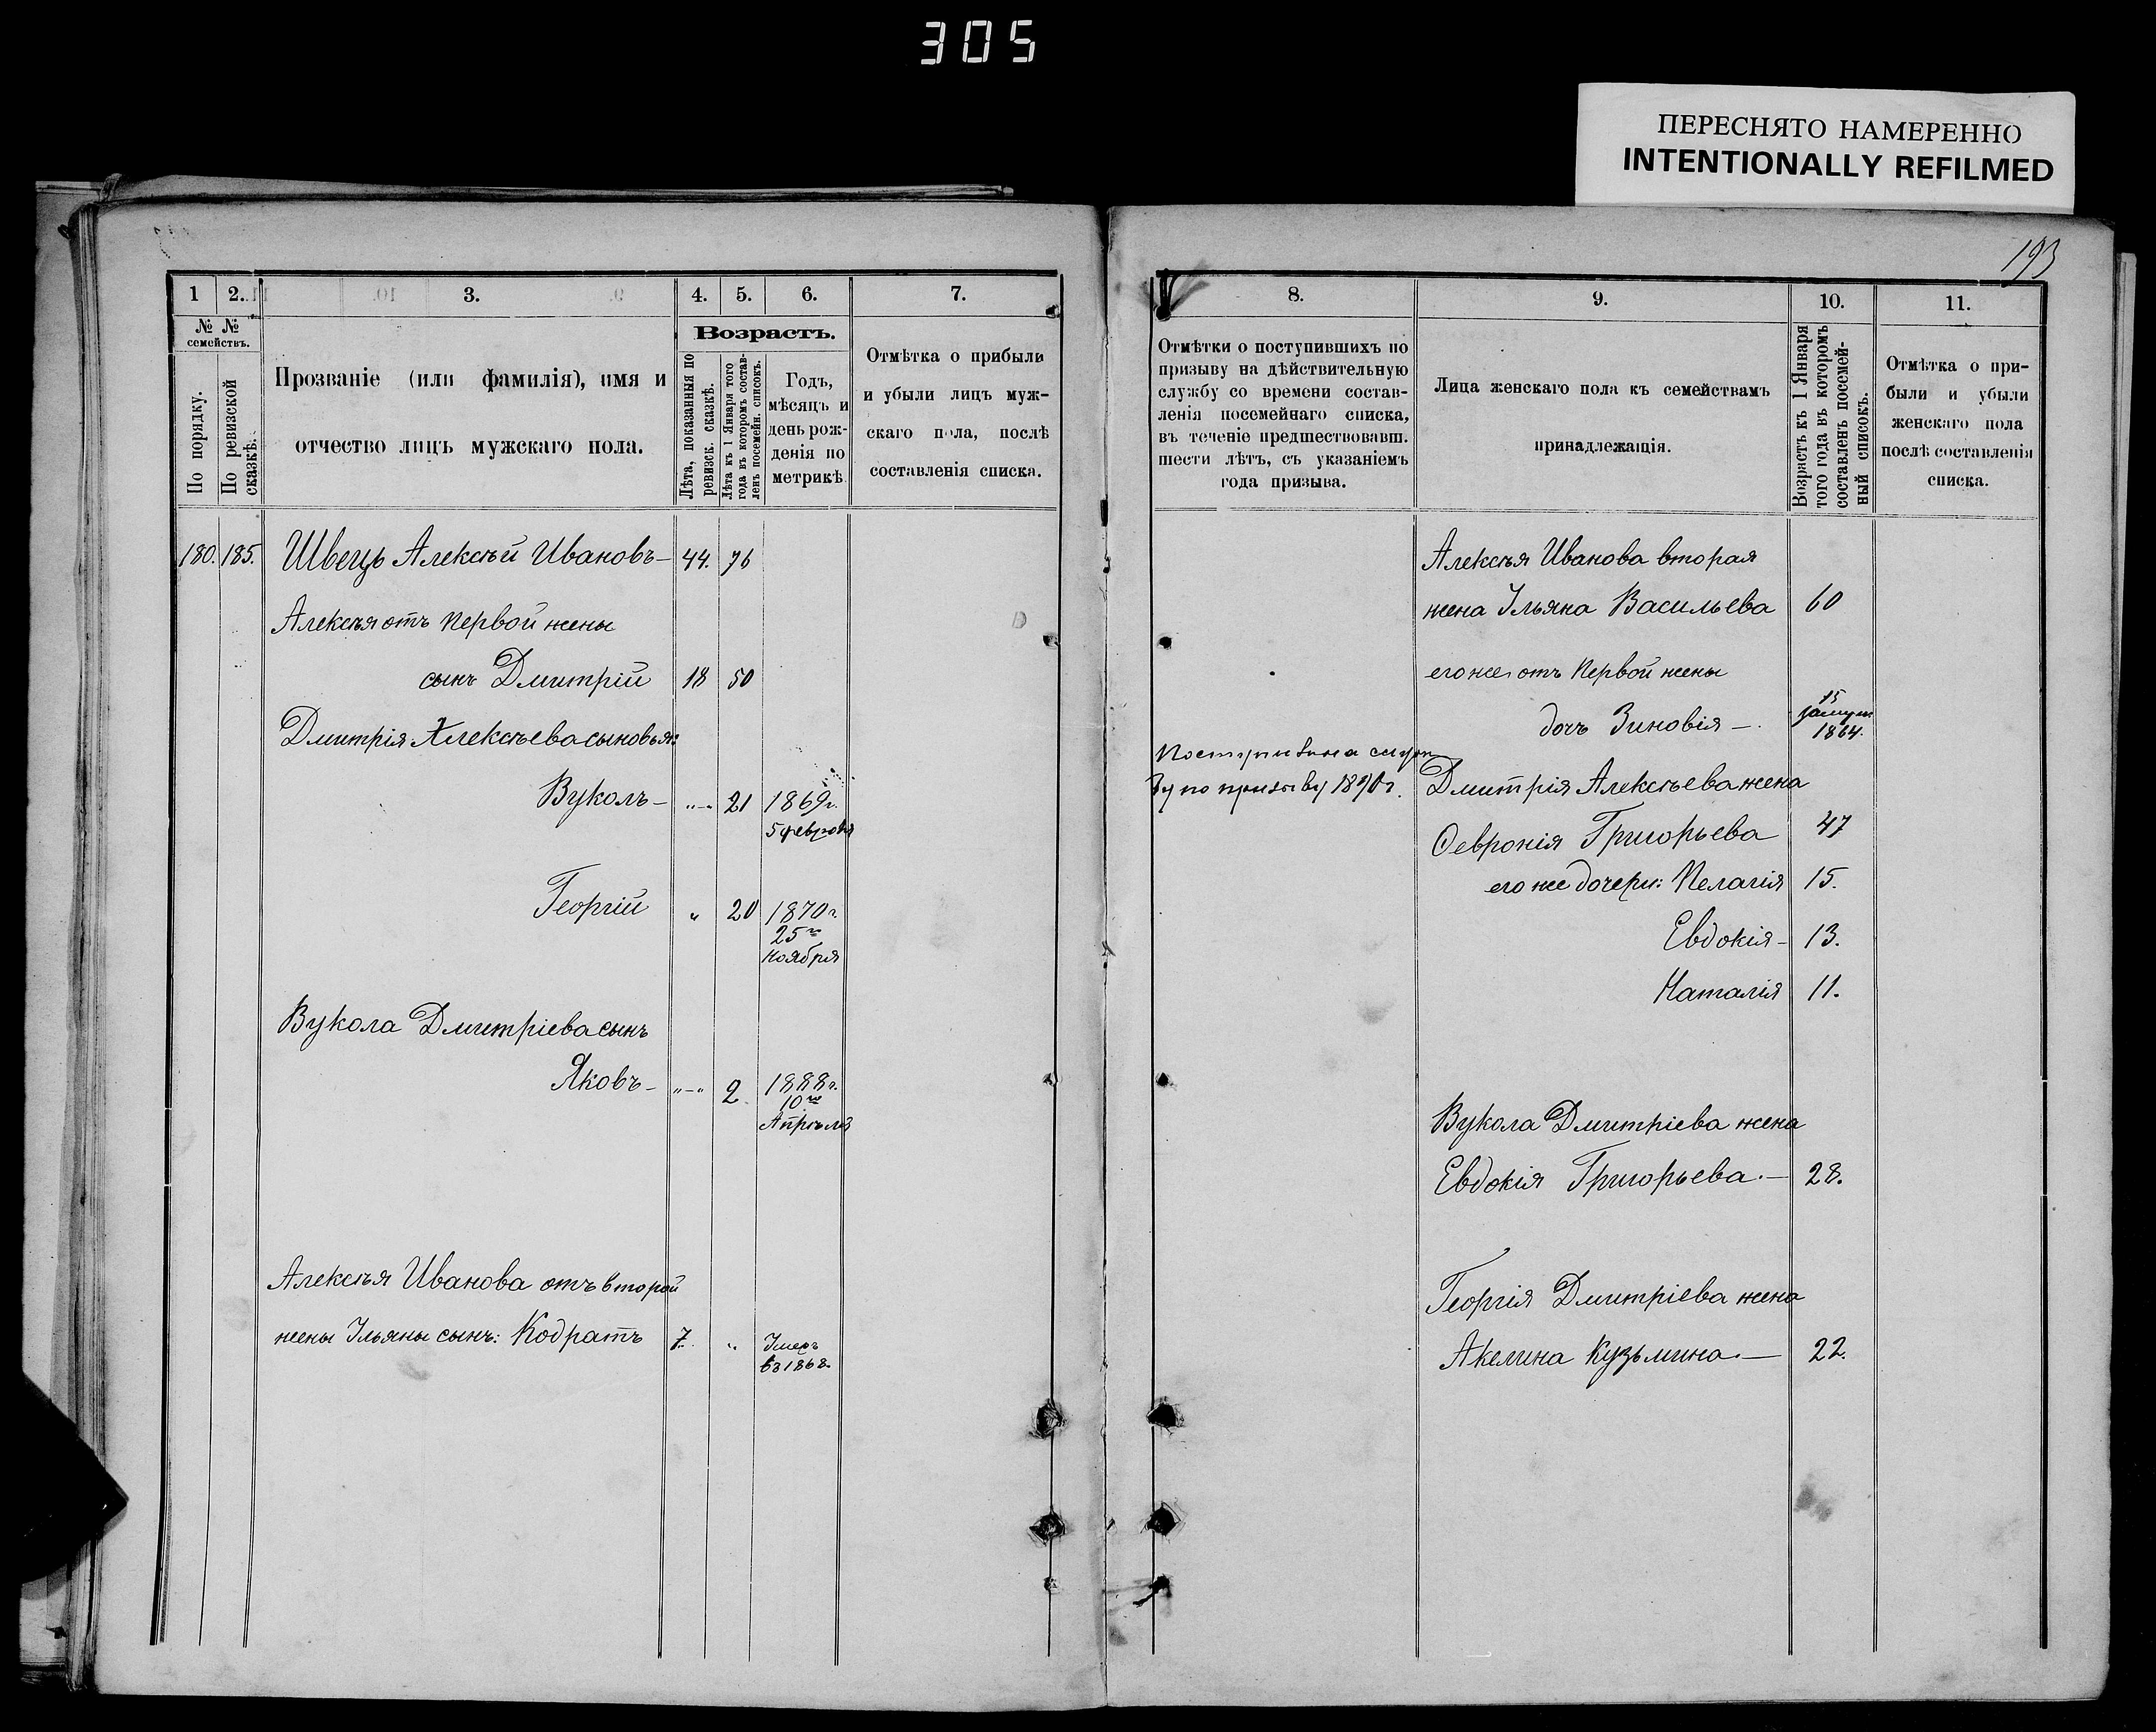 305
ПЕРЕСНЯТО НАМЕРЕННО
INTENTIONALLY REFILMED
193
1
2.
3.
4.
5.
6.
7.
№ №
семействъ.
По порядку.
По ревизской
сказкѣ.
Прозваніе (или фамилія), имя и
отчество лицъ мужскаго пола.
Возрастъ.
Лѣта, показанныя по
ревизск. сказкѣ.
Лѣта къ 1 Января того
года въ которомъ состав-
ленъ посемейн. списокъ.
Годъ,
мѣсяцъ и
день рож-
денія по
метрикѣ
Отмѣтка о прибыли
и убыли лицъ муж-
скаго пола, послѣ
составленія списка.
180. 185. Швецъ Алексѣй Ивановъ- 44. 76
Алексѣя отъ первой жены
сынъ Дмитрій 18 50
Дмитрія Алексѣева сыновья:
Вуколъ- "-" 21 1869г.
5 февраля
Георгій " 20 1870г.
25го
Ноября
Вукола Дмитріева сынъ
Яковъ- "-" 2 1888г.
10го
Апрѣля
Алексѣя Иванова отъ второй
жены Ульяны сынъ: Кодратъ 7. " Умеръ
въ 1868.
8.
9.
10.
11.
Отмѣтки о поступившихъ по
призыву на дѣйствительную
службу со времени состав-
ленія посемейнаго списка,
въ теченіе предшествовавш.
шести лѣтъ, съ указаніемъ
года призыва.
Лица женскаго пола къ семействамъ
принадлежащія.
Возрастъ къ 1 Января
того года въ которомъ
составленъ посемей-
ный списокъ.
Отмѣтка о при-
были и убыли
женскаго пола
послѣ составленія
списка.
Алексѣя Иванова вторая
жена Ульяна Васильева 60
его же отъ первой жены
дочь Зиновія -. 15
замуж
1864.
на служ
бу по призыву 1890г.
Дмитрія Алексѣева жена
Февронія Григорьева 47
его же дочери: Пелагія 15.
Евдокія- 13.
Наталія 11.
Вукола Дмитріева жена
Евдокія Григорьева.- 28.
Георгія Дмитріева жена
Акелина Кузьмина.- 22.